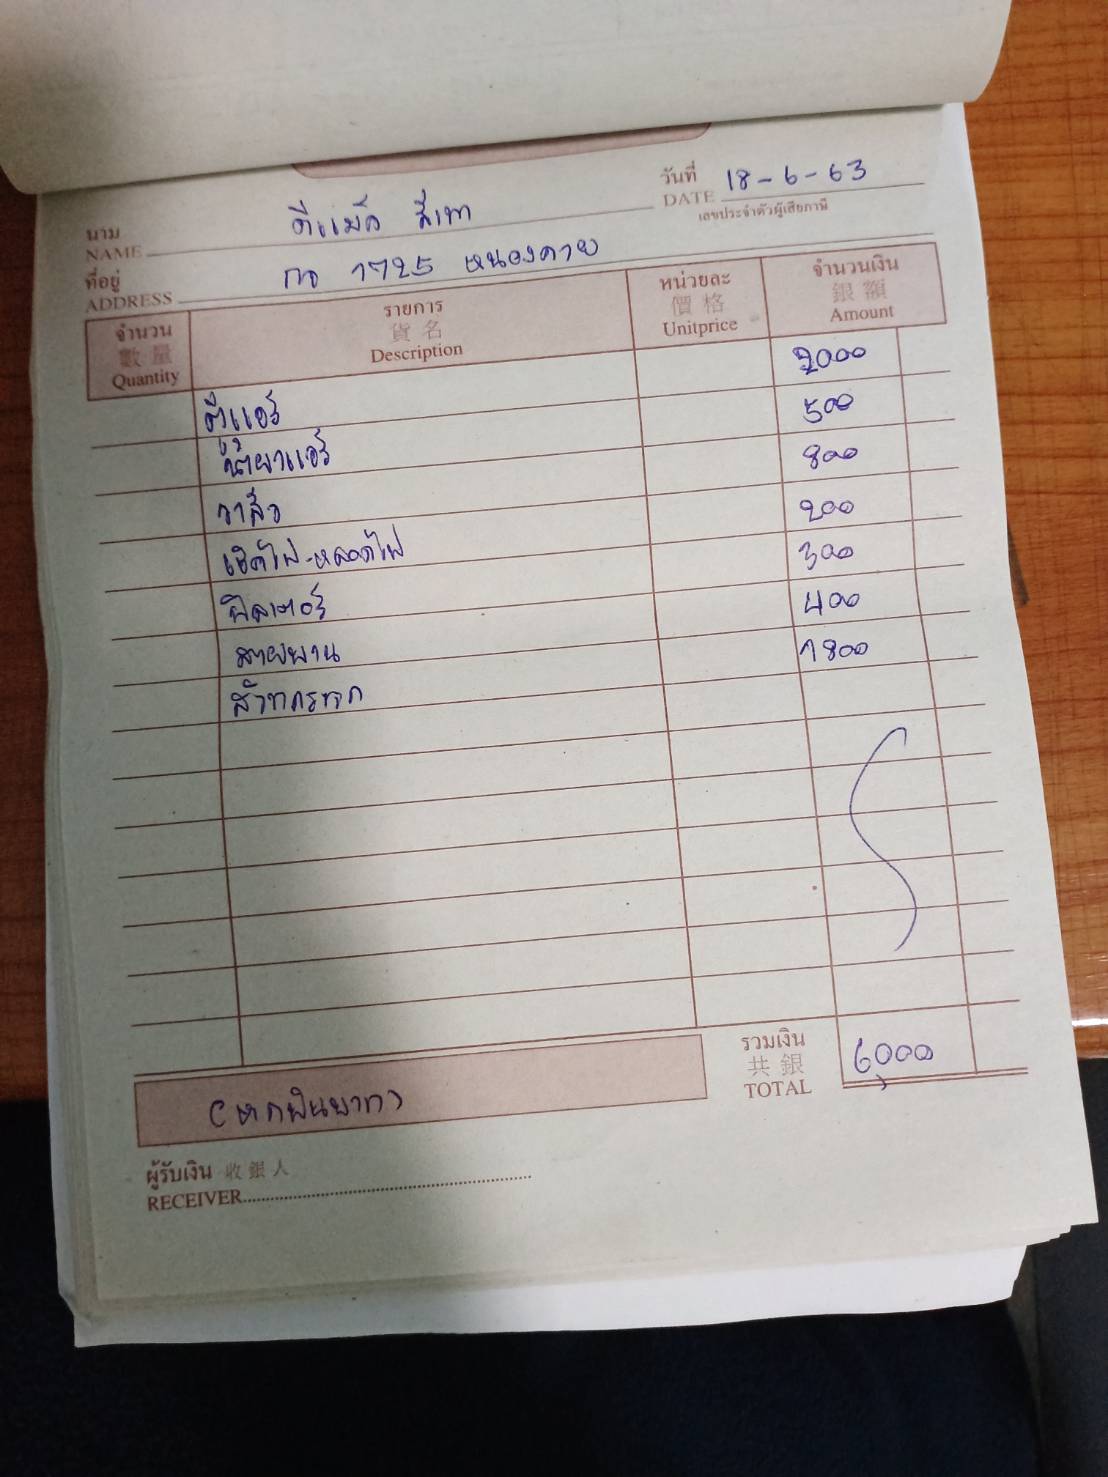 นาม ดีแม็ก สีเทา วันที่ 18-6-63
NAME DATE
เลขประจำตัวผู้เสียภาษี
ที่อยู่ กอ 1725 หนองคาย
ADDRESS
จำนวน รายการ หน่วยละ จำนวนเงิน
數量 貨名 價格 銀額
Quantity Description Unitprice Amount
ตู้แอร์ 2000
น้ำยาแอร์ 500
วาล์ว 800
เช็คไฟ-หลอดไฟ 200
ฟิลเตอร์ 300
สายพาน 400
1800
รวมเงิน
共銀 6000
TOTAL
(หกพันบาท)
ผู้รับเงิน 收銀人
RECEIVER